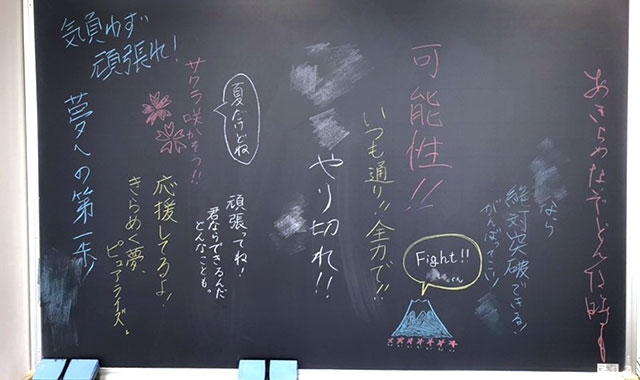 あきらめないでどんな時も
なら
絶対突破できる!
がんばってこい!
可能性!!
いつも通り!! 全力で!!
Fight!!
くん
やり切れ!!
夏だけどね
頑張ってね!
君ならできるんだ
どんなことも。
サクラ咲かそう!!
応援してるよ!
きらめく夢、
ピュアライズ♪
気負わず
頑張れ!
夢への第一歩!